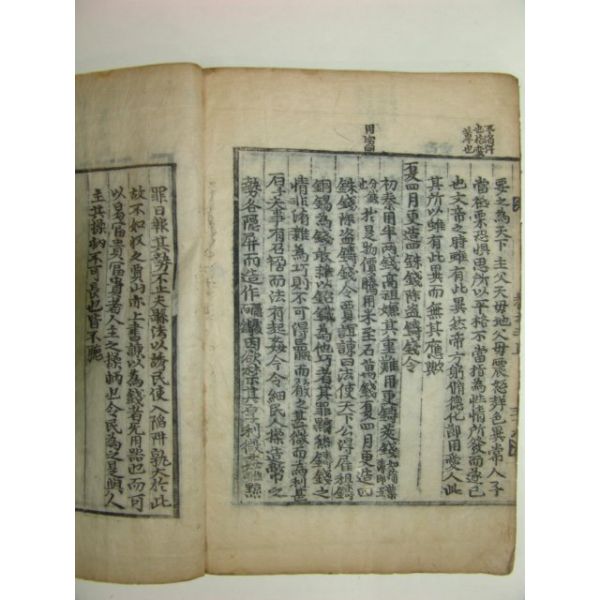 要之為天下主父天母地父母震怒辭色異常人子
當祗栗恐惧思所以平格不當指為性情所發而遂已
也文帝之時雖有此異然帝方躬脩德化節用愛人此
其所以雖有此異而無其應歟
夏四月更造四銖錢除盜鑄錢令
初秦用半兩錢高祖嫌其重難用更鑄莢錢
於是物價騰用米至石萬錢夏四月更造四
銖錢除盜鑄錢令賈誼諫曰法使天下公得雇租鑄
銅錫為錢敢雜以鉛鐵為他巧者其罪黥然鑄錢之
情非淆雜為巧則不可得贏而殽之甚微而為利甚
厚夫事有召禍而法有起姦今令細民人操造幣之
勢各隱屏而造作因欲禁其厚利微姦雖黥
罪日報其勢不止夫縣法以誘民使入陷阱孰大於此
故不如收之賈山亦上書諫以為錢者无用器也而可
以易富貴富貴者人主之操柄也令民為之是與人
主共操柄不可長也皆不聽